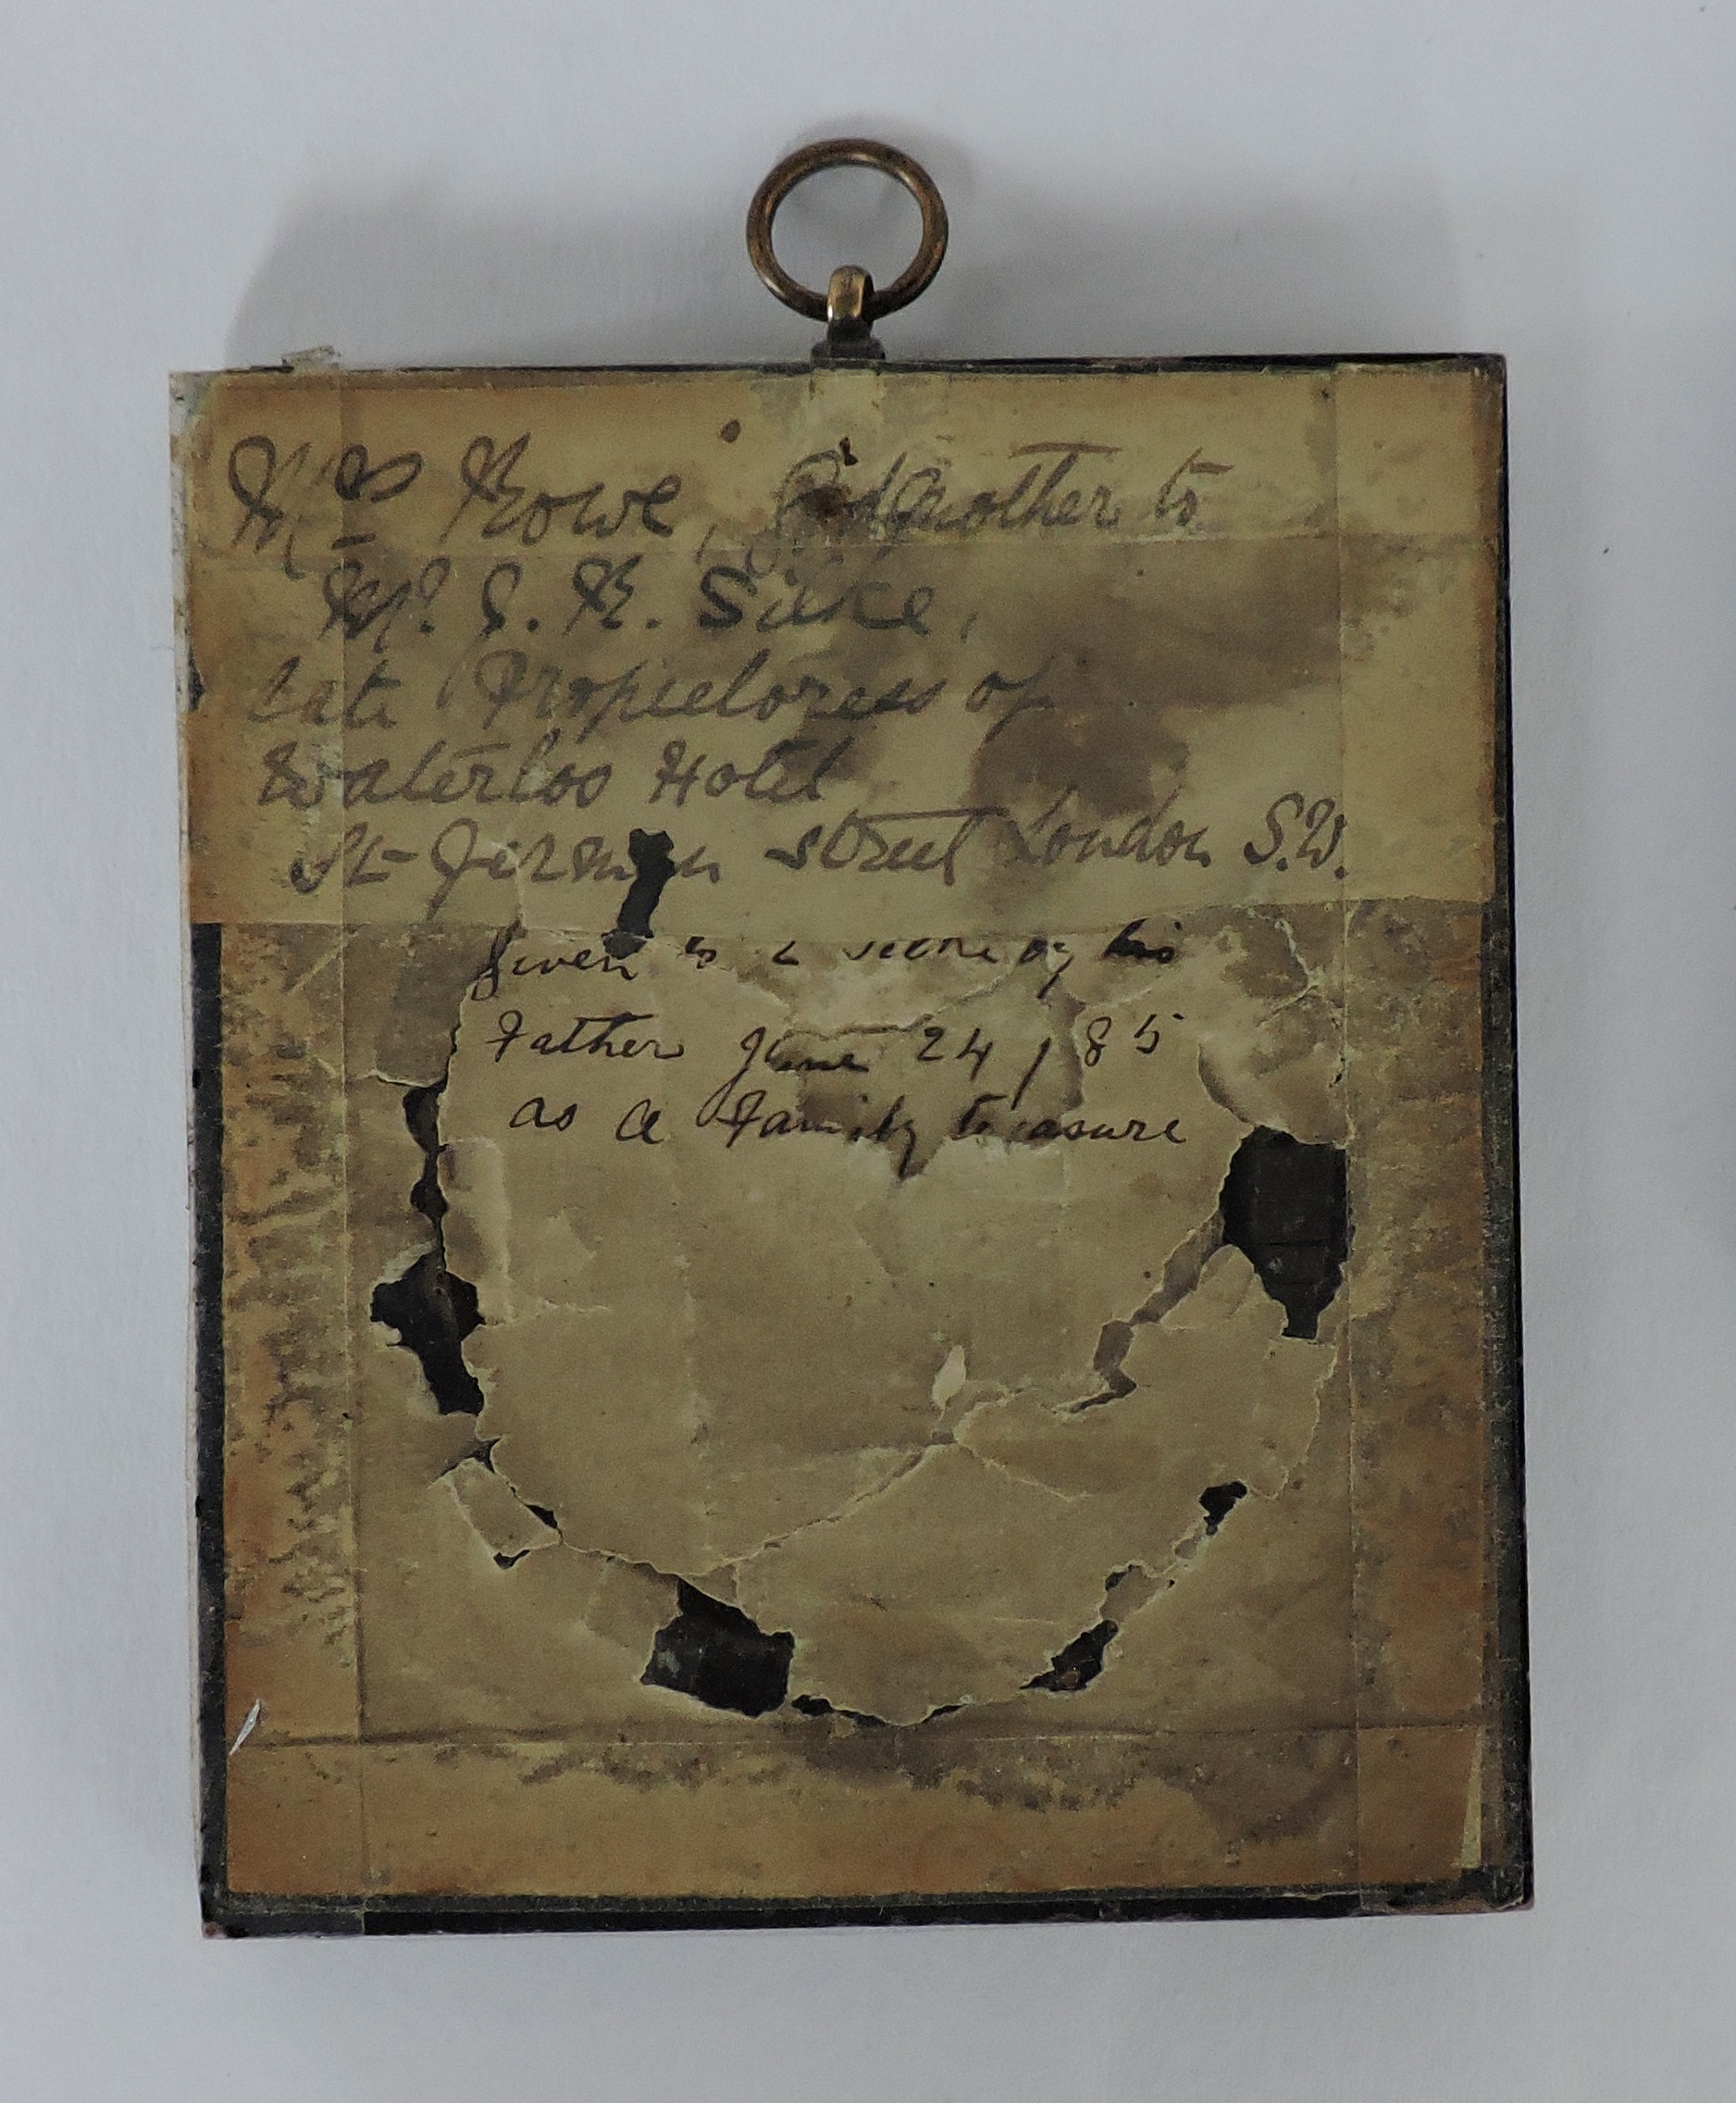 Mrs Rowe, Godmother to
Mr. J. R. Silke,
Late Propietoress of
Waterloo Hotel
St-Jerman street London S.W.
Given by his
Father June 24 / 85
as a Family treasure